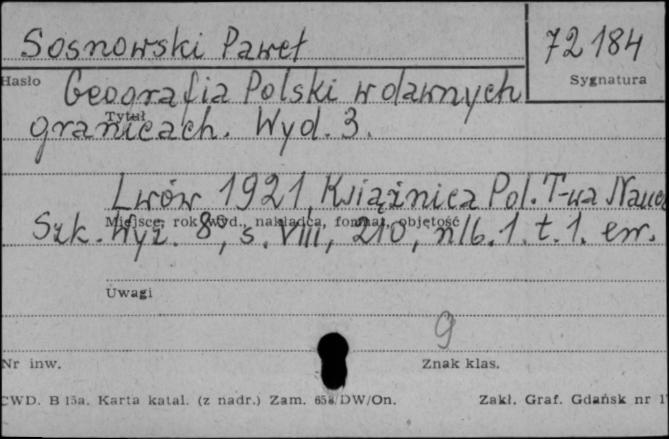 Sosnowski Paweł
72184
Hasło
Sygnatura
Geografia Polski w dawnych
Tytuł
granicach. Wyd. 3.
Lwów 1921, Książnica Pol. T-wa Nauc
Miejsce, rok wyd., nakładca, format, objętość
Szk. Wyż. 8°, s. VIII, 210, nlb. 1. t. 1. err.
Uwagi
9
Nr inw.
Znak klas.
CWD. B 15a. Karta katal. (z nadr.) Zam. 658/DW/On.
Zakł. Graf. Gdańsk nr 1